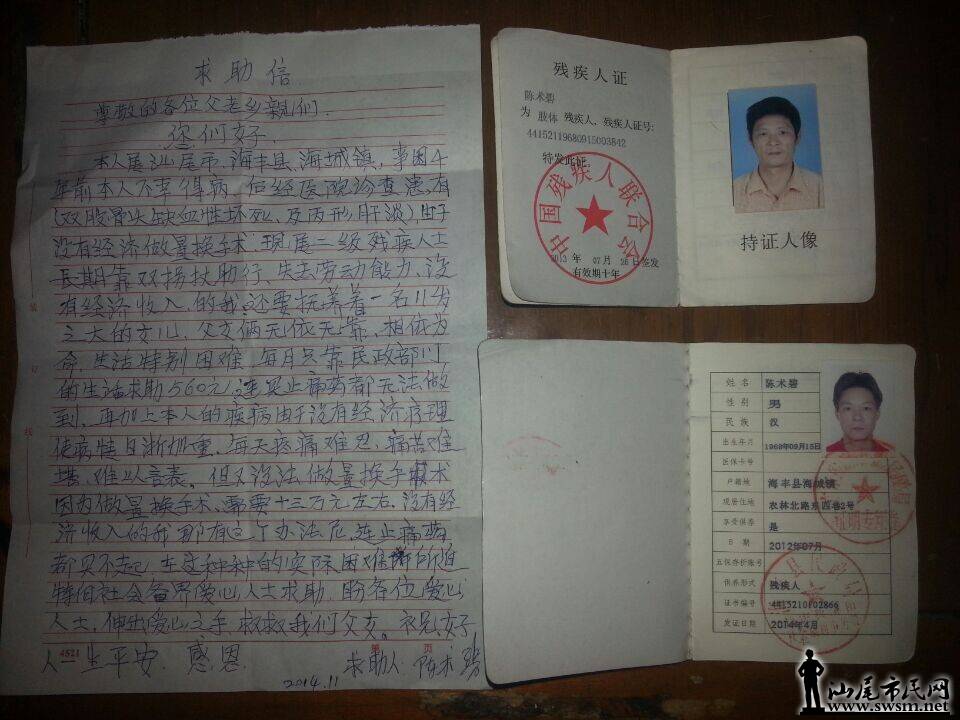 求助信
尊敬的各位父老乡亲们.
您们好
本人属汕尾市,海丰县,海城镇,事因4
年前本人不幸得病,后经医院诊查患,有
(双股骨头缺血性坏死,及丙形肝淡),由于
没有经济做置换手术.现属二级残疾人士
长期靠双拐扶助行,失去劳动能力,没
有经济收入的我,还要抚养着一名11岁
之大的女儿,父女俩无依无靠,相依为
命,生活特别困难,每月只靠民政部门
的生活求助560元,连买止痛药都无法做
到,再加上本人的疾病由于没有经济病理
使病情日渐加重,每天疼痛难忍,痛苦难
堪,难以言表。但又没法做置换手术
因为做置换手术,需要十三万元左右,没有经
济收入的我那有这个办法呢,连止痛药
都买不起,在这种种的实际困难所迫
特向社会各界爱心人士求助,盼各位爱心
人士,伸出爱心之手救救我们父女。祝兄,好
人一生平安.感恩
求助人:陈术碧
2014.11
4521
第 页
装
订
线
残疾人证
陈术碧
为 肢体 残疾人,残疾人证号:
44152119680915003842
特发此证
中国残疾人联合会
2013 年 07 月 26 日签发
有效期十年
持证人像
姓名 陈术碧
性别 男
民族 汉
出生年月 1968年09月15日
医保卡号
户籍地 海丰县海城镇
现居住地 农林北路东四巷2号
享受低保 是
日期 2012年07月
五保存折账号
供养形式 残疾人
证书编号 4415210102866
发证日期 2014年4月
汕尾市民网
www.swsm.net